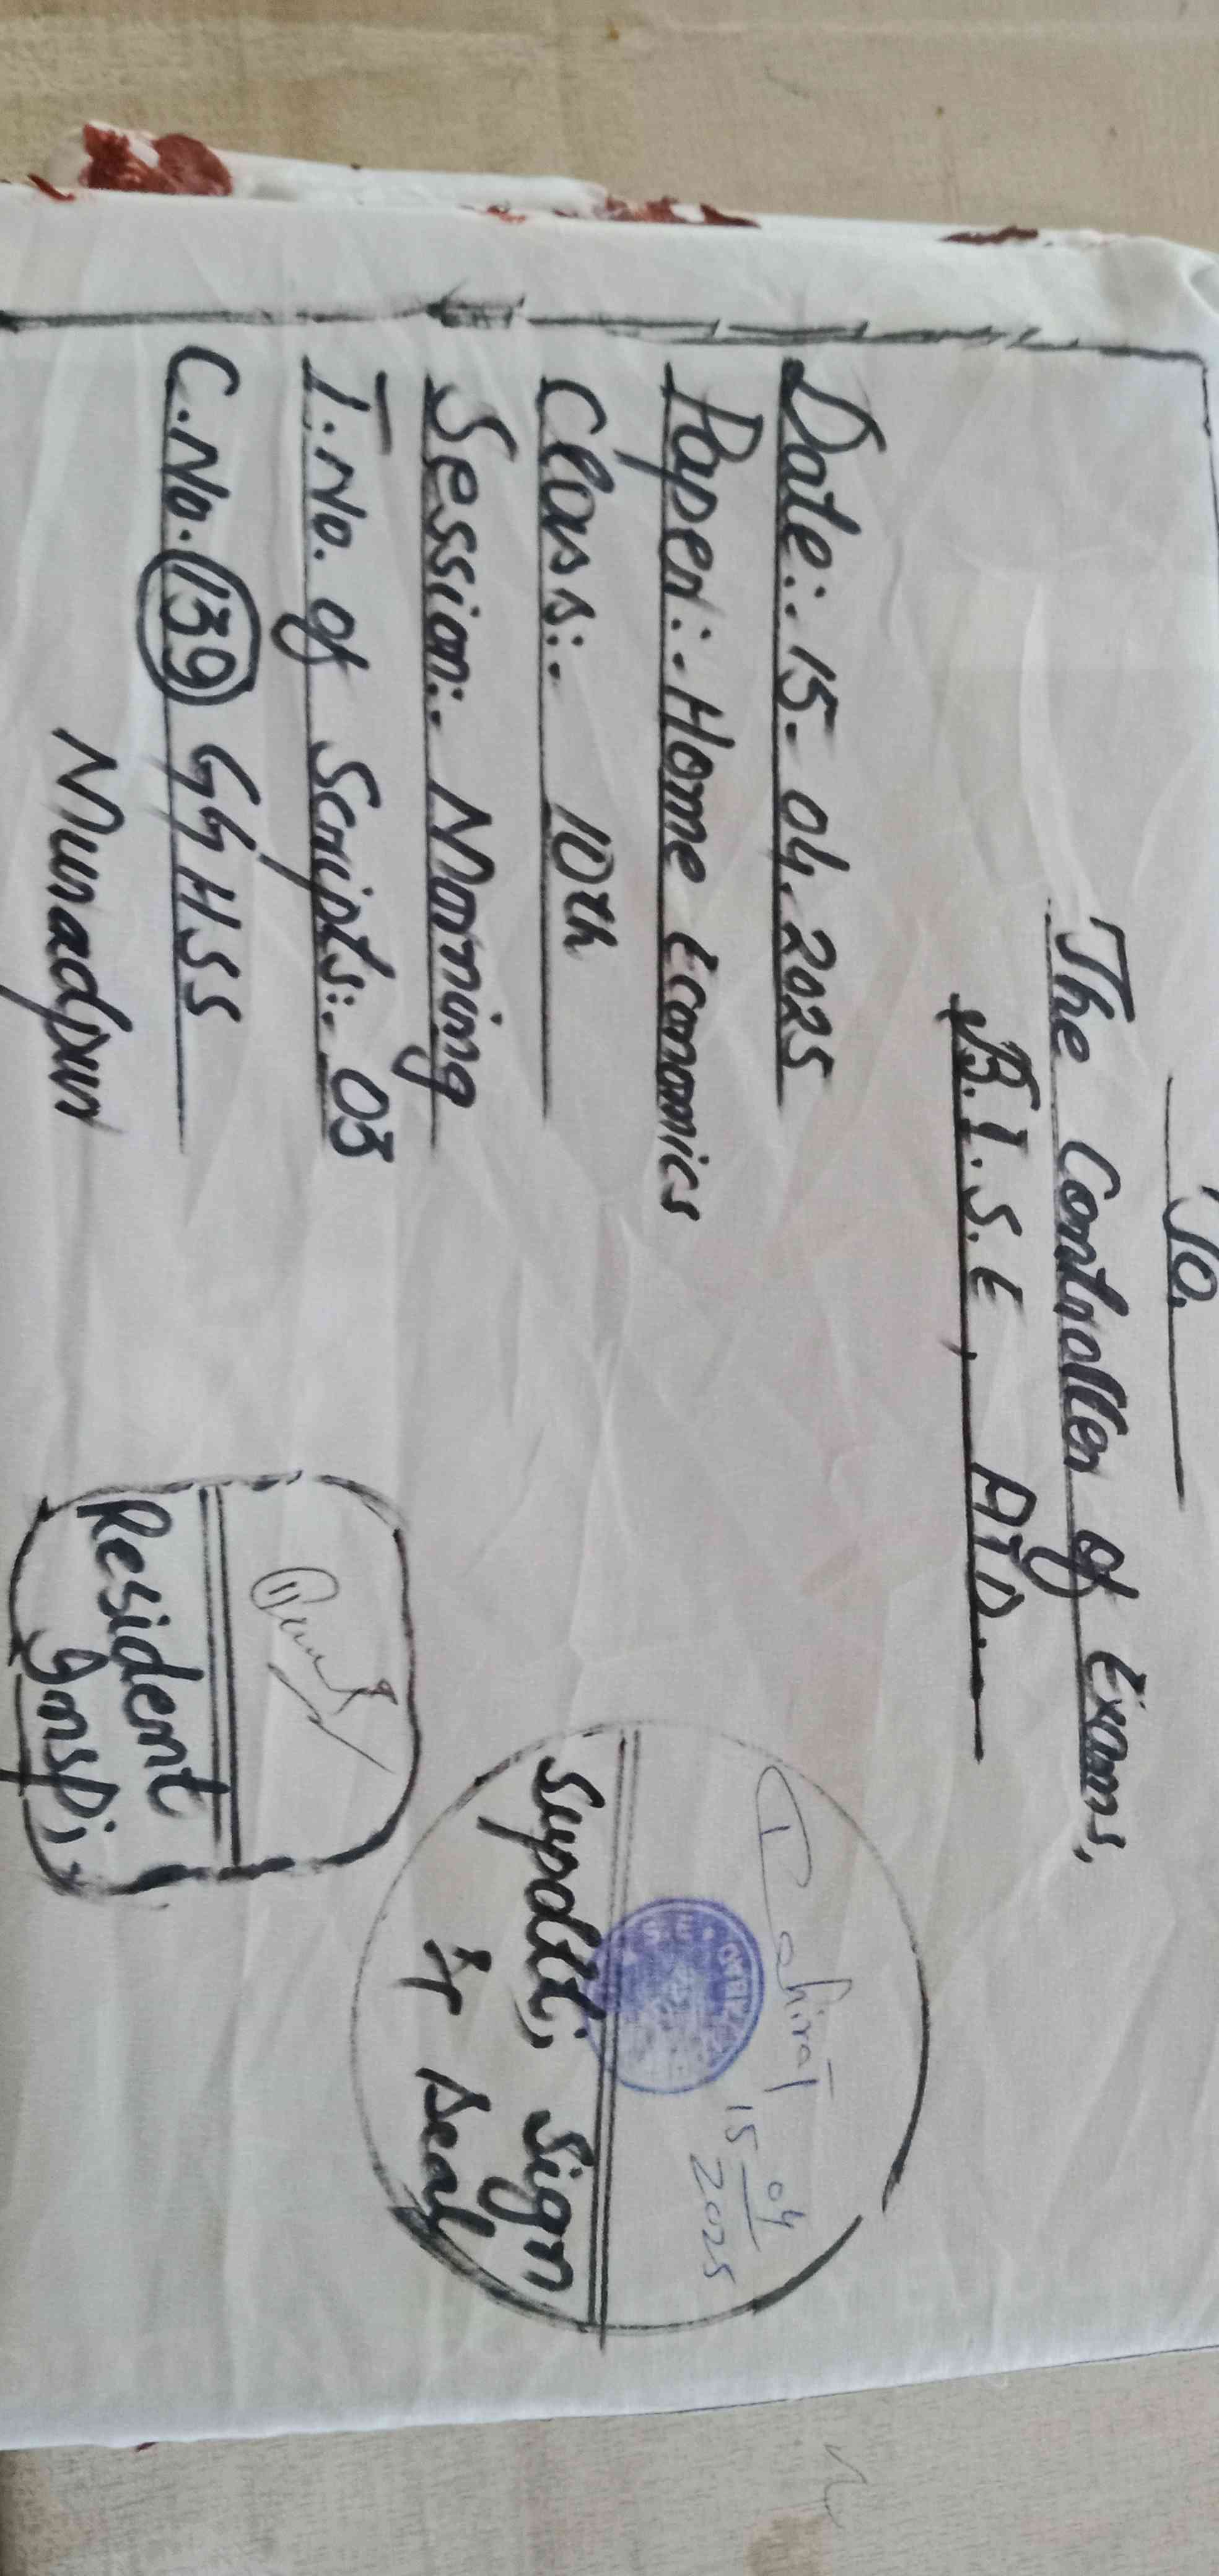 To.
The Controller of Exams,
B.I.S.E, ATD.
Date:. 15-04.2025
Paper:. Home Economics
Class:. 10th
Session:. Morning
T.No. of Scripts:. 03
C.No. 139 GGHSS
Muradpur
15 04
2025
Supdtt; Sign
& Seal
Resident
Insp;